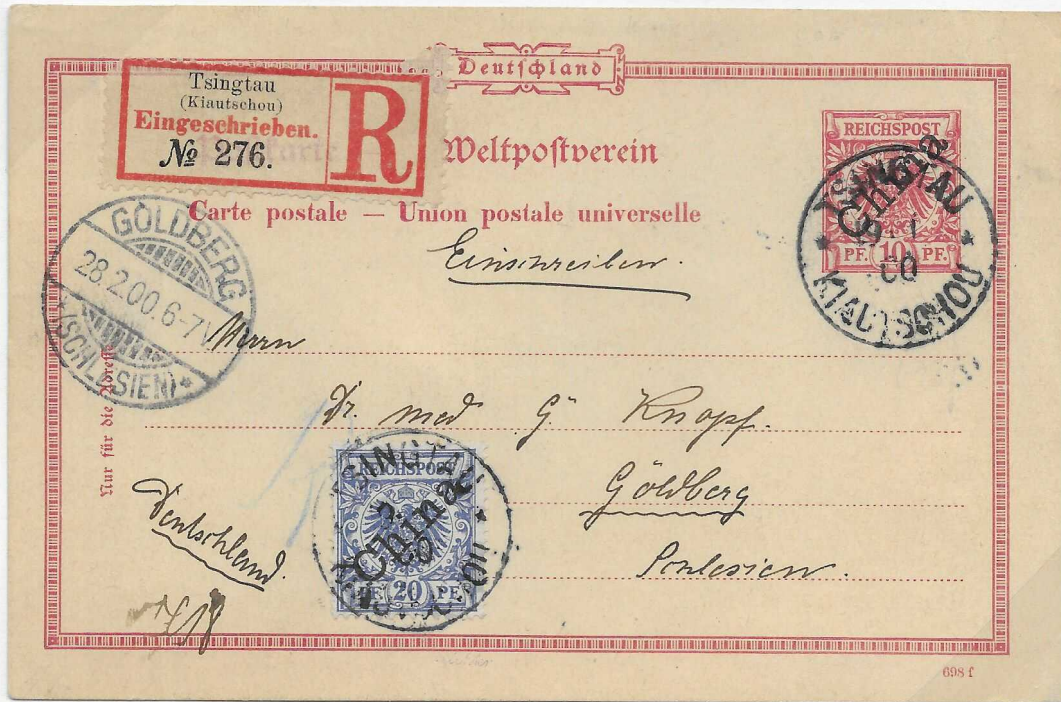 Deutschland
Tsingtau
(Kiautschou)
Eingeschrieben.
№ 276.
R
Weltpostverein
Carte postale — Union postale universelle
REICHSPOST
PF. 10 PF.
China
TSINGTAU
KIAUTSCHOU
GOLDBERG
28.2.00.6-7V
*(SCHLESIEN)*
Einschreiben.
Herrn
Dr. med G. Knopf.
Göldberg
Schlesien.
Deutschland.
Nur für die
REICHSPOST
China
PF. 20 PF.
TSINGTAU
698 f